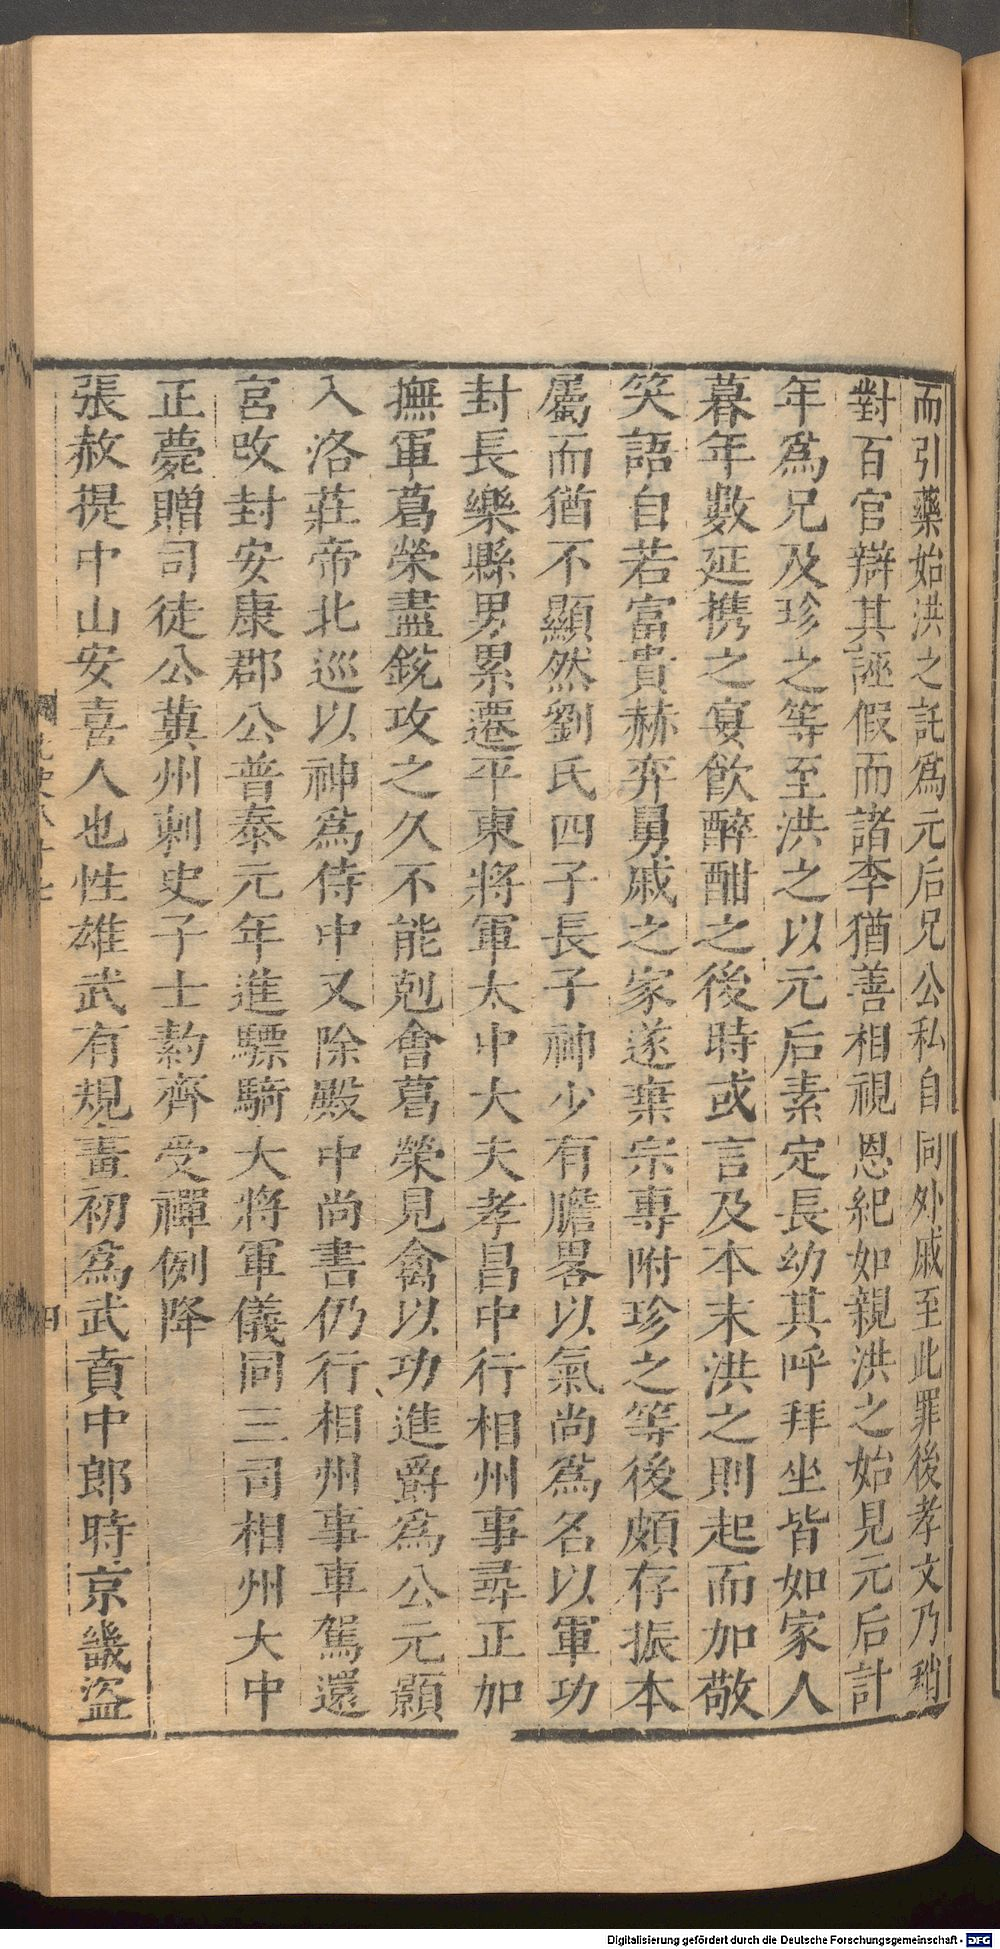 而引藥始洪之託爲元后兄公私自同外戚至此罪後孝文乃稍
對百官辯其誣假而諸李猶善相視恩紀如親洪之始見元后計
年爲兄及珍之等至洪之以元后素定長幼其呼拜坐皆如家人
暮年數延攜之宴飲醉酣之後時或言及本末洪之則起而加敬
笑語自若富貴赫弈舅戚之家遂棄宗專附珍之等後頗存振本
屬而猶不顯然劉氏四子長子神少有膽畧以氣尚爲名以軍功
封長樂縣男累遷平東將軍太中大夫孝昌中行相州事尋正加
撫軍葛榮盡銳攻之久不能剋會葛榮見禽以功進爵爲公元顥
入洛莊帝北巡以神爲侍中又除殿中尚書仍行相州事車駕還
宮改封安康郡公普泰元年進驃騎大將軍儀同三司相州大中
正薨贈司徒公冀州刺史子士約齊受禪例降
張赦提中山安喜人也性雄武有規畫初爲武賁中郎時京畿盜
Digitalisierung gefördert durch die Deutsche Forschungsgemeinschaft - DFG